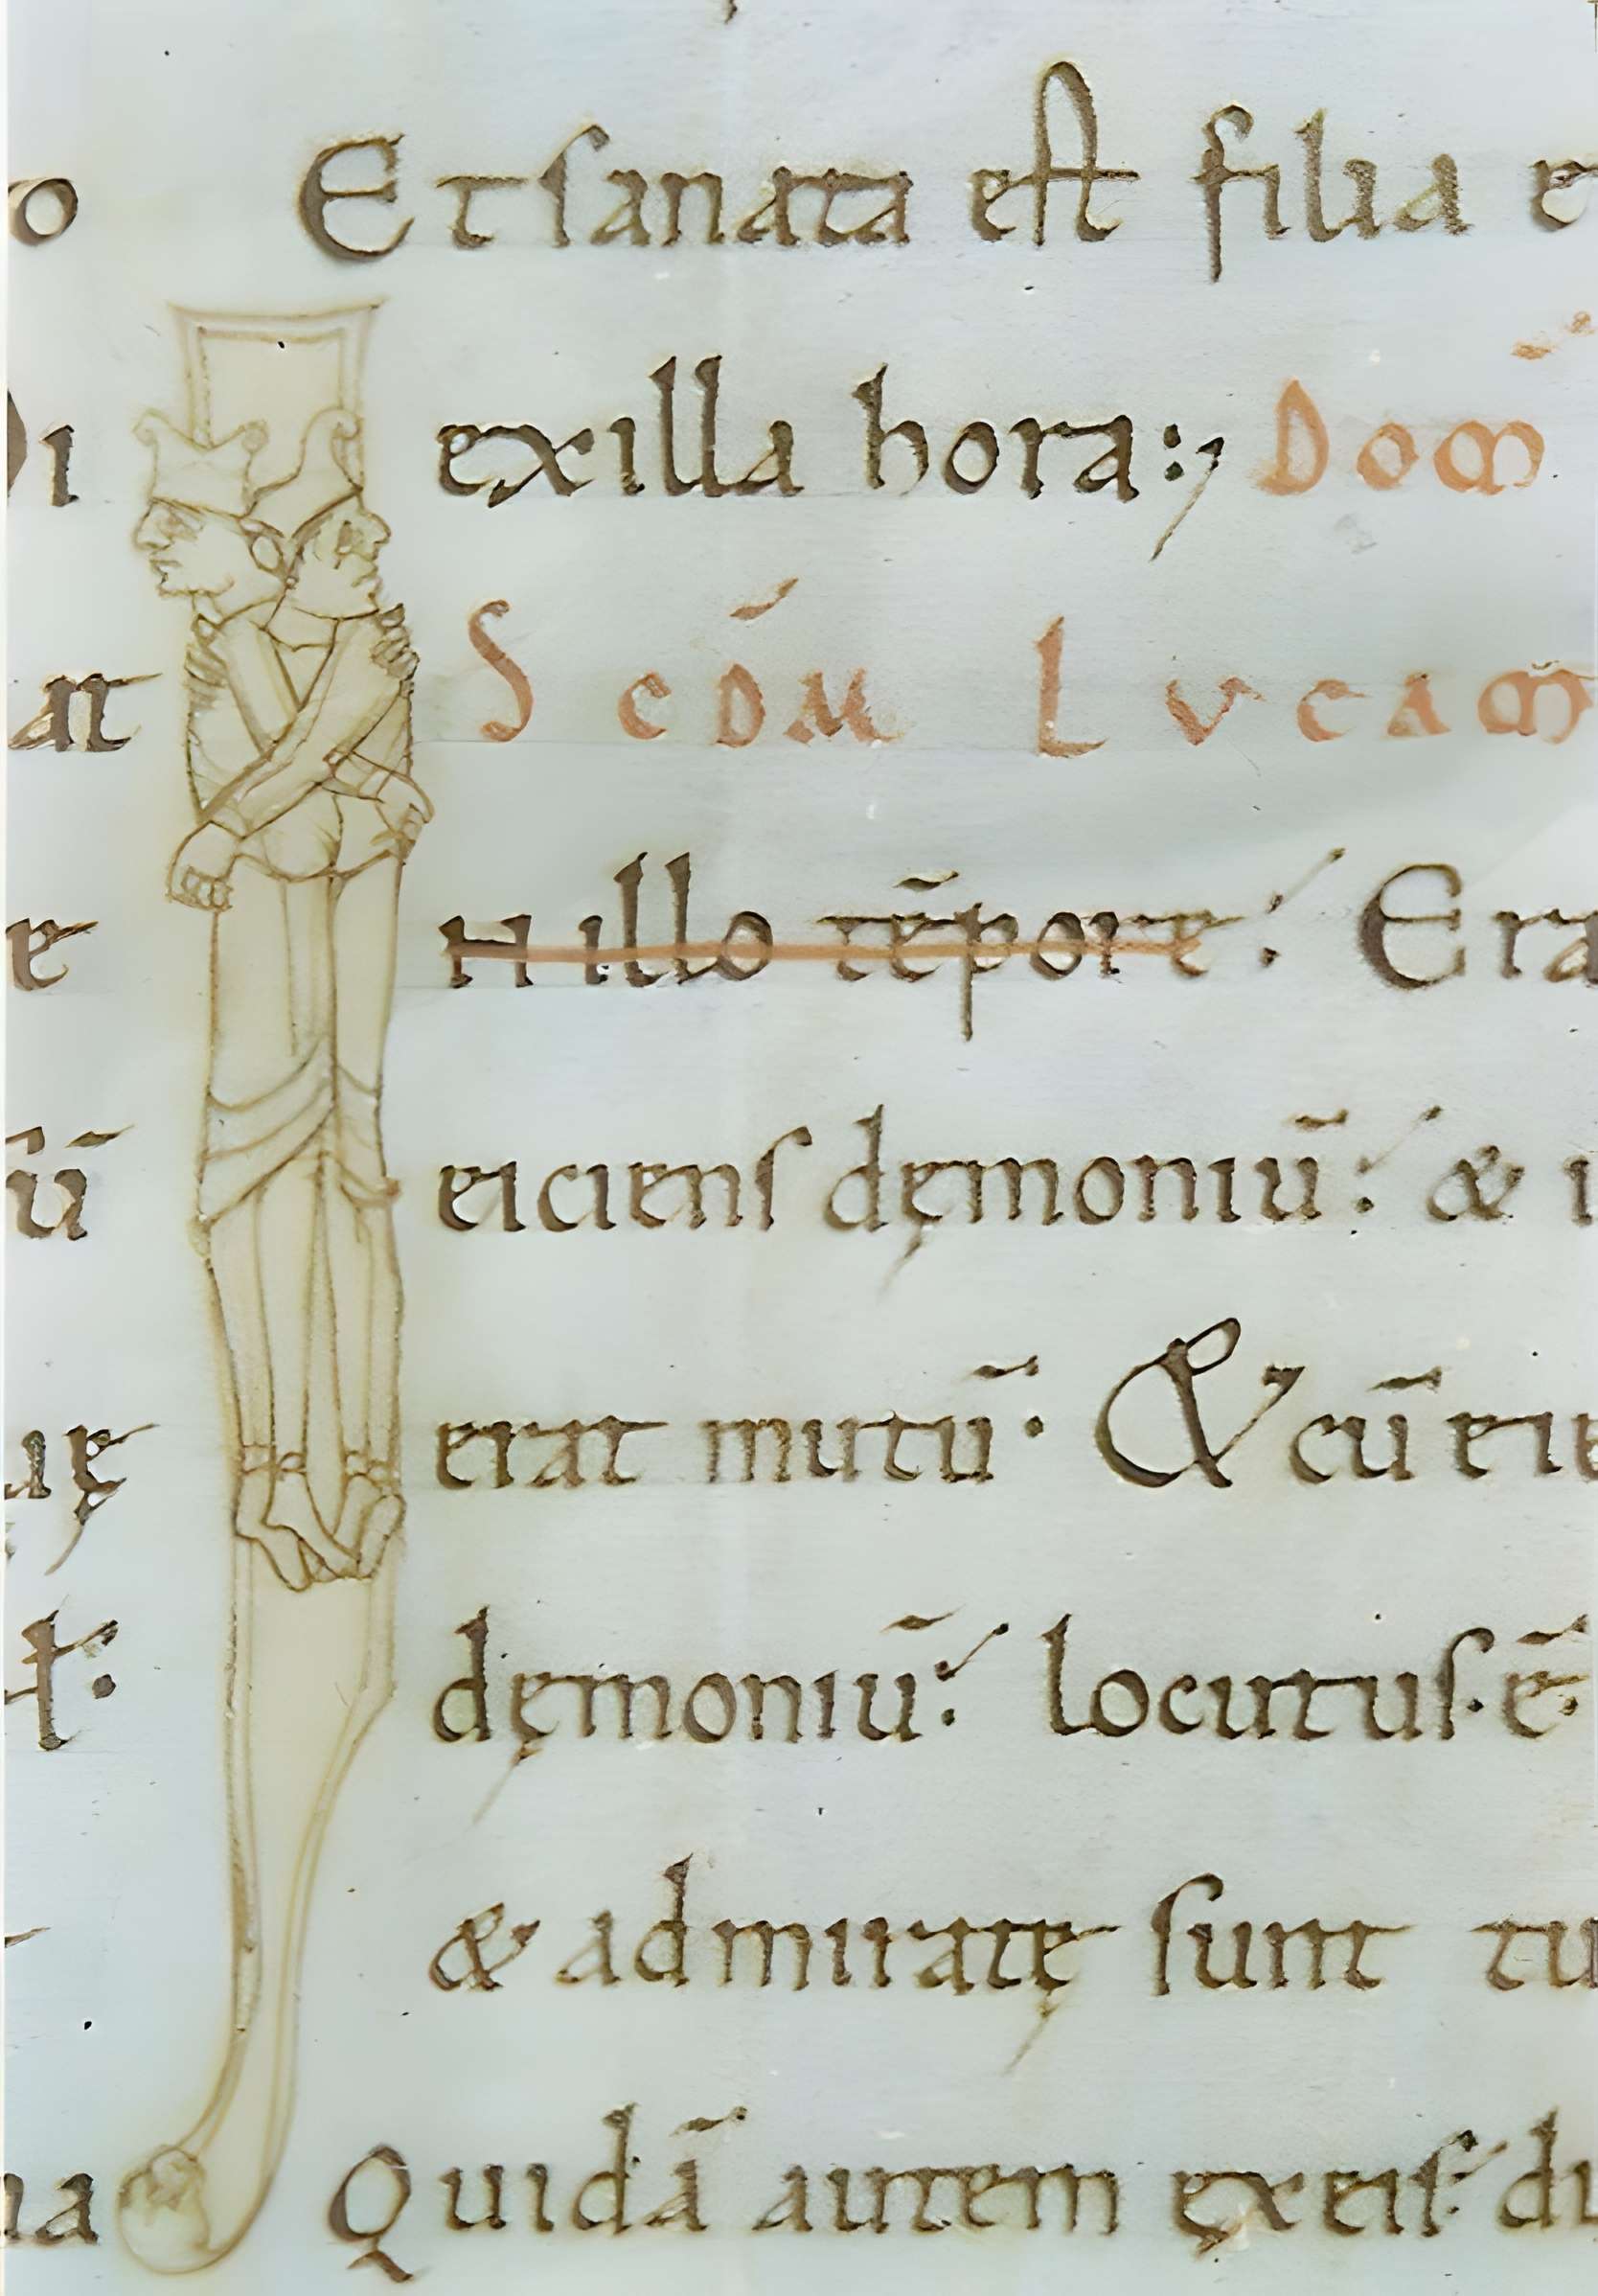 Et sanata est filia e
ex illa hora:, Dom̄
Scdm̄ Lucam̄
N illo tēpore: Era
eiciens dęmoniū: & i
erat mutū. & cū eie
dęmoniū: locutus. ē.
& admiratę sunt tu
Quidā autem ęxeis: di